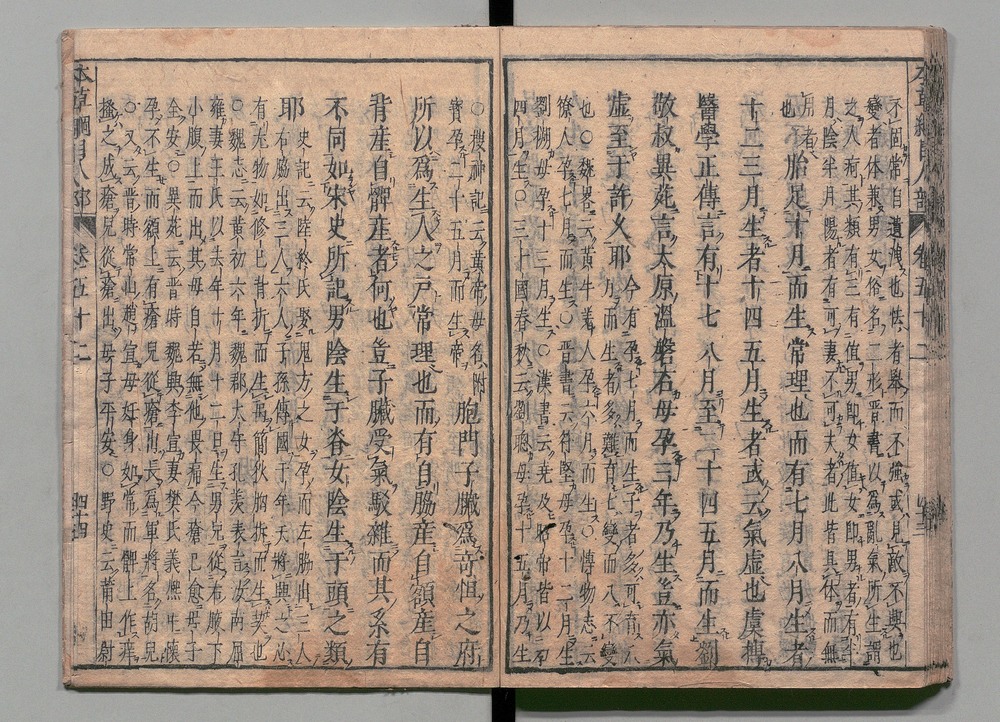 不固常自遺洩也怯者擧而不強或見敵不興也
變者体兼男女俗名二形晋書以爲亂氣所生謂
之人痾其類有三有値男即女値女即男者有半
月陰半月陽者有可妻不可夫者此皆具体而無
用者
也 胎足十月而生常理也而有七月八月生者
十二三月生者十四五月生者或云氣虚也虞摶
醫學正傳言有十七八月至二十四五月而生劉
敬叔異苑言太原温磐石母孕三年乃生豈亦氣
虚至于許久耶 今有孕七月而生子者多可育八
月而生者多難育七變而八不變
也○魏畧云黄牛羌人孕六个月而生○博物志云
獠人孕七月而生○晋書云符堅母孕十二月生
劉搠母孕十三月生○漢書云堯及昭帝皆以十
四月生○三十國春秋云劉聰母孕十五月乃生
○搜神記云黄帝母名附
寳孕二十五月而生帝 胞門子臟爲奇恒之府
所以爲生人之戸常理也而有自脇産自額産自
背産自髀産者何也豈子臟受氣駁雜而其系有
不同如宋史所記男陰生于脊女陰生于頭之類
耶 史記云陸終氏娶鬼方之女孕而左脇出三人
右脇出三人六人子孫傳國千年天將興之必
有尤物如修己背折而生禹簡狄胸拆而生契也
○魏志云黄初六年魏郡太守孔羨表言汝南屈
雍妻王氏以去年十月十二日生男兒從右腋下
小腹上而出其母自若無他畏痛今瘡已愈母子
全安○異苑云晋時魏興李宣妻樊氏義熙中懷
孕不生而額上有瘡兒從瘡出長爲軍將名胡兒
○又云晋時常山趙宣母妊身如常而髀上作痒
搔之成瘡兒從瘡出母子平安○野史云莆田尉
本草綱目人部 卷五十二
四十四